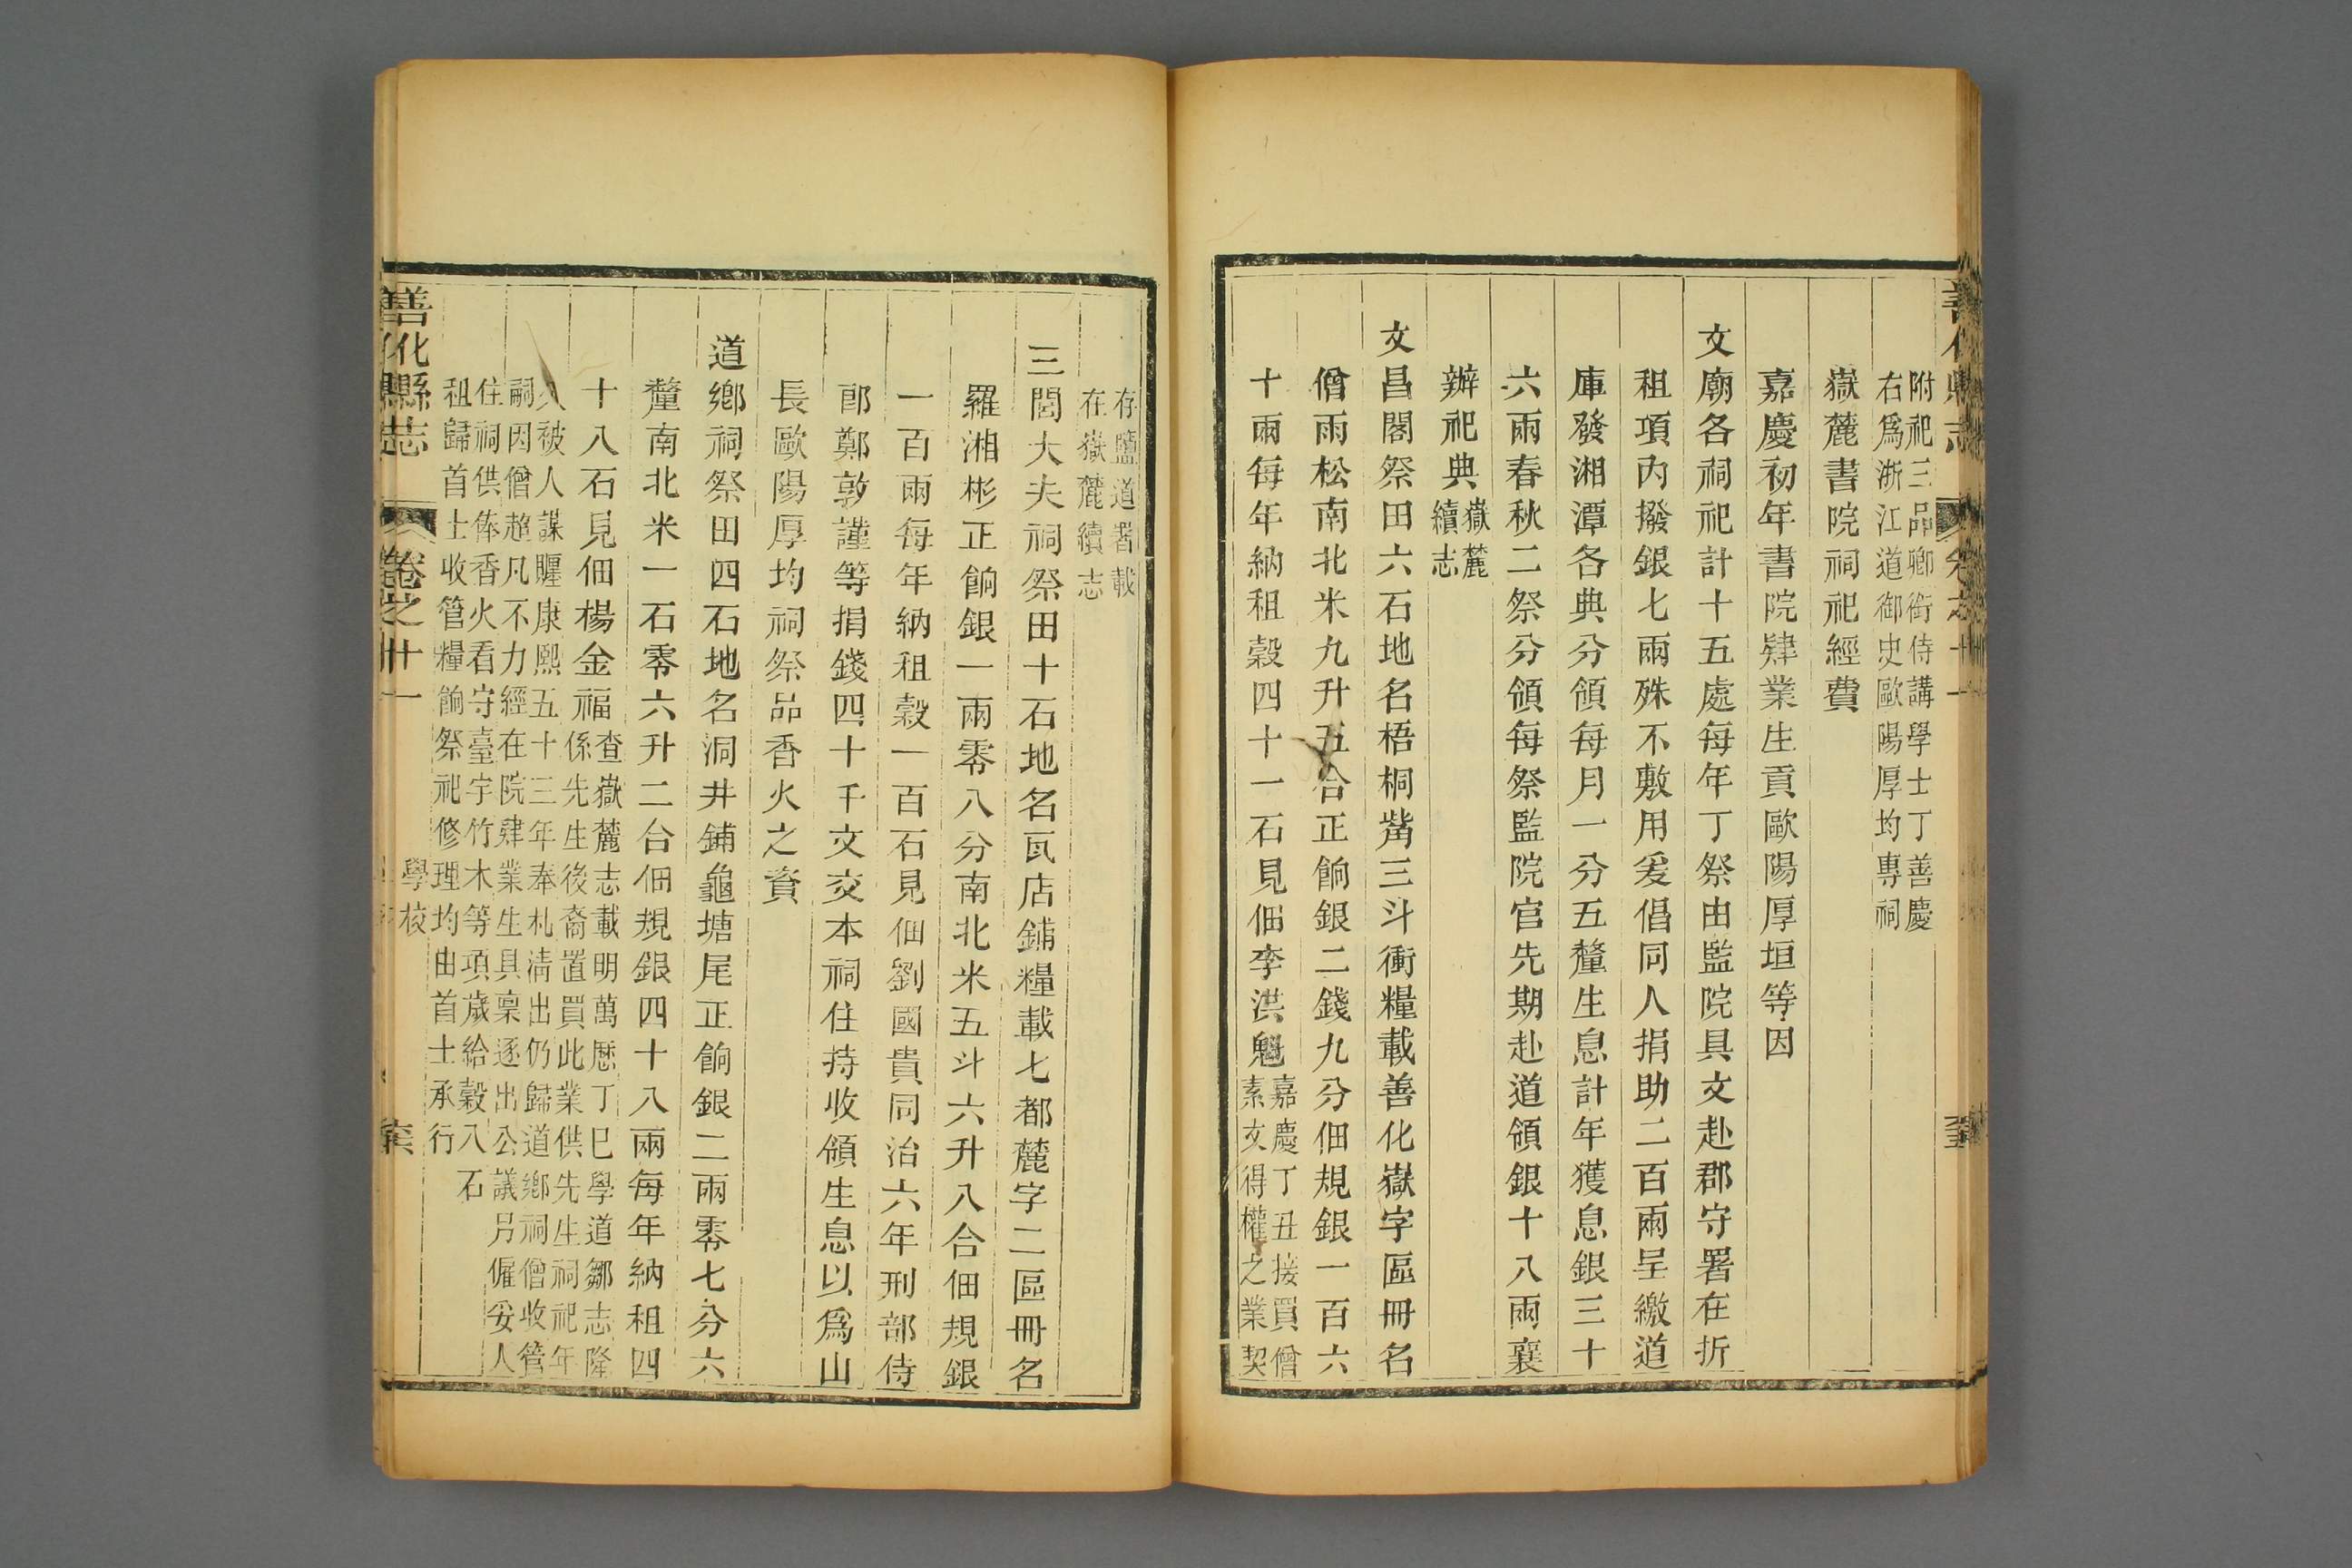 善化縣志 卷之十一
附祀三品卿銜侍講學士丁善慶
右爲浙江道御史歐陽厚均專祠
嶽麓書院祠祀經費
嘉慶初年書院肄業生貢歐陽厚垣等因
文廟各祠祀計十五處每年丁祭由監院具文赴郡守署在折
租項內撥銀七兩殊不敷用爰倡同人捐助二百兩呈繳道
庫發湘潭各典分領每月一分五釐生息計年獲息銀三十
六兩春秋二祭分領每祭監院官先期赴道領銀十八兩襄
辦祀典嶽麓續志
文昌閣祭田六石地名梧桐觜三斗衝糧載善化嶽字區冊名
僧雨松南北米九升五合正餉銀二錢九分佃規銀一百六
十兩每年納租穀四十一石見佃李洪魁嘉慶丁丑接買僧
素文得權之業契
存鹽道署載
在嶽麓續志
三閭大夫祠祭田十石地名瓦店鋪糧載七都麓字二區冊名
羅湘彬正餉銀一兩零八分南北米五斗六升八合佃規銀
一百兩每年納租穀一百石見佃劉國貴同治六年刑部侍
郎鄭敦謹等捐錢四十千文交本祠住持收領生息以爲山
長歐陽厚均祠祭品香火之資
道鄉祠祭田四石地名洞井鋪龜塘尾正餉銀二兩零七分六
釐南北米一石零六升二合佃規銀四十八兩每年納租四
十八石見佃楊金福查嶽麓志載明萬厯丁巳學道鄒志隆
係先生後裔置買此業供先生祠祀年
久被人謀𧸘康熙五十三年奉札淸出仍歸道鄉祠僧收管
嗣因僧超凡不力經在院肄業生具稟逐出公議另僱妥人
住祠供俸香火看守臺宇竹木等項歲給穀八石
租歸首士收管糧餉祭祀修理均由首士承行
善化縣志 卷之十一 學校